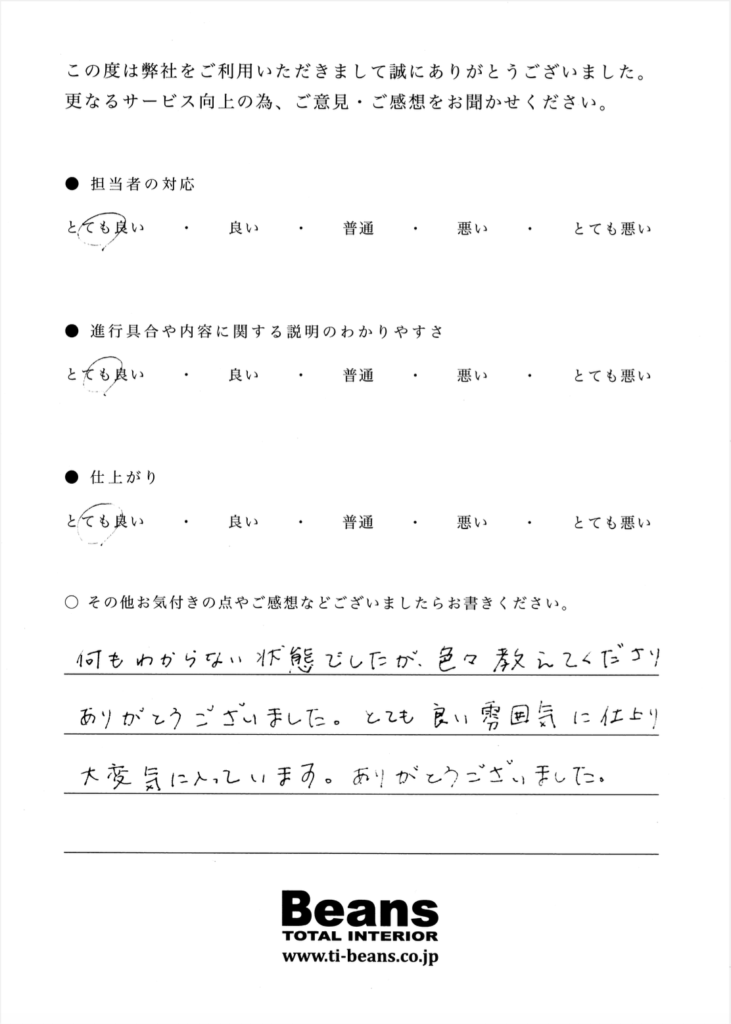 この度は弊社をご利用いただきまして誠にありがとうございました。
更なるサービス向上の為、ご意見・ご感想をお聞かせください。
● 担当者の対応
とても良い ・ 良い ・ 普通 ・ 悪い ・ とても悪い
● 進行具合や内容に関する説明のわかりやすさ
とても良い ・ 良い ・ 普通 ・ 悪い ・ とても悪い
● 仕上がり
とても良い ・ 良い ・ 普通 ・ 悪い ・ とても悪い
○ その他お気付きの点やご感想などございましたらお書きください。
何もわからない状態でしたが、色々教えてくださり
ありがとうございました。とても良い雰囲気に仕上り
大変気に入っています。ありがとうございました。
Beans
TOTAL INTERIOR
www.ti-beans.co.jp